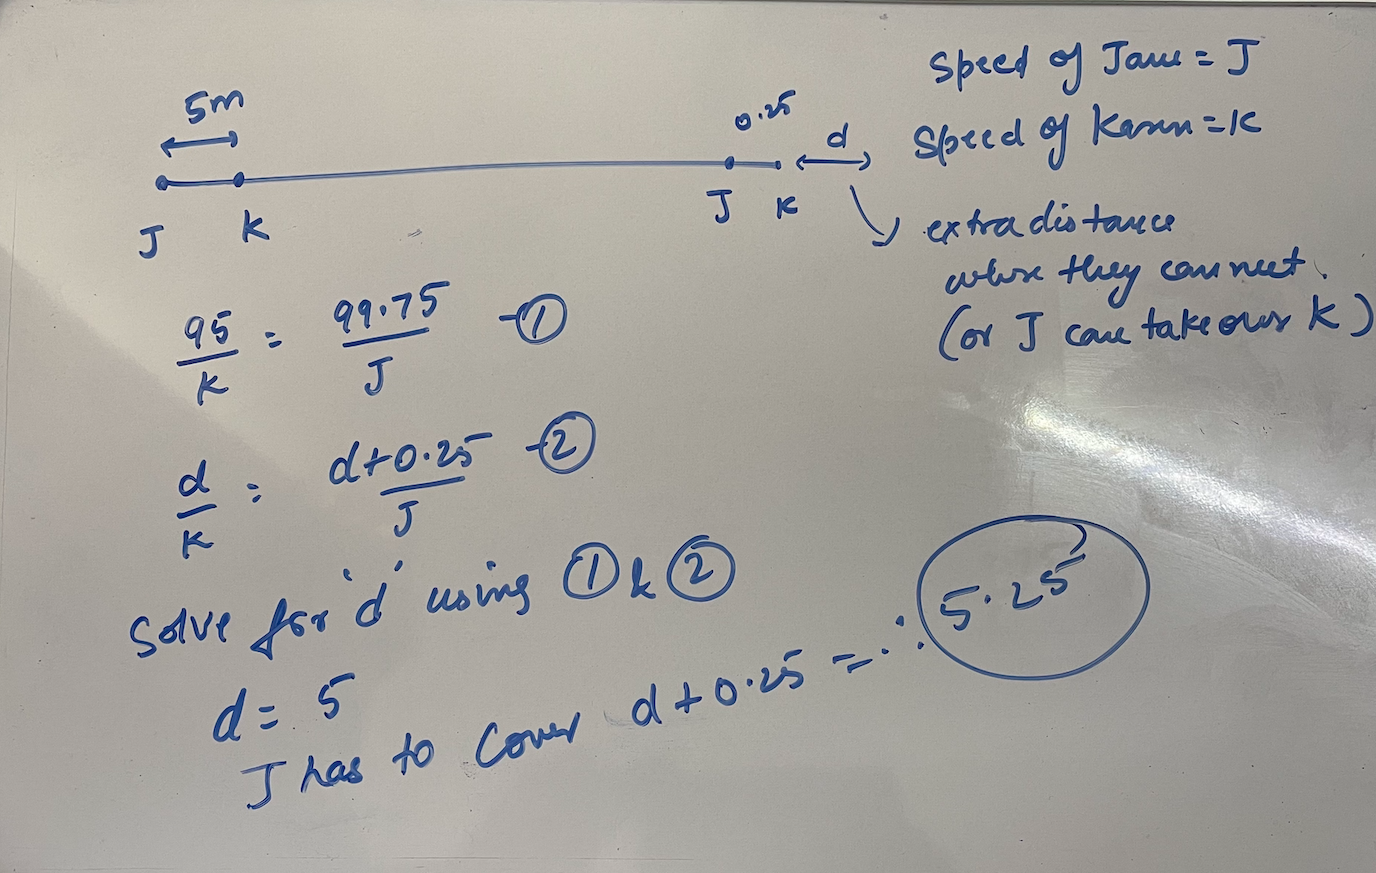 5m
J K
0.25
d
J K
Speed of Jane = J
Speed of Karen = K
extra distance
where they can meet.
(or J can take over K)
95/K = 99.75/J - ①
d/K = d+0.25/J - ②
Solve for 'd' using ① & ②
d = 5
J has to cover d + 0.25 = ... 5.25